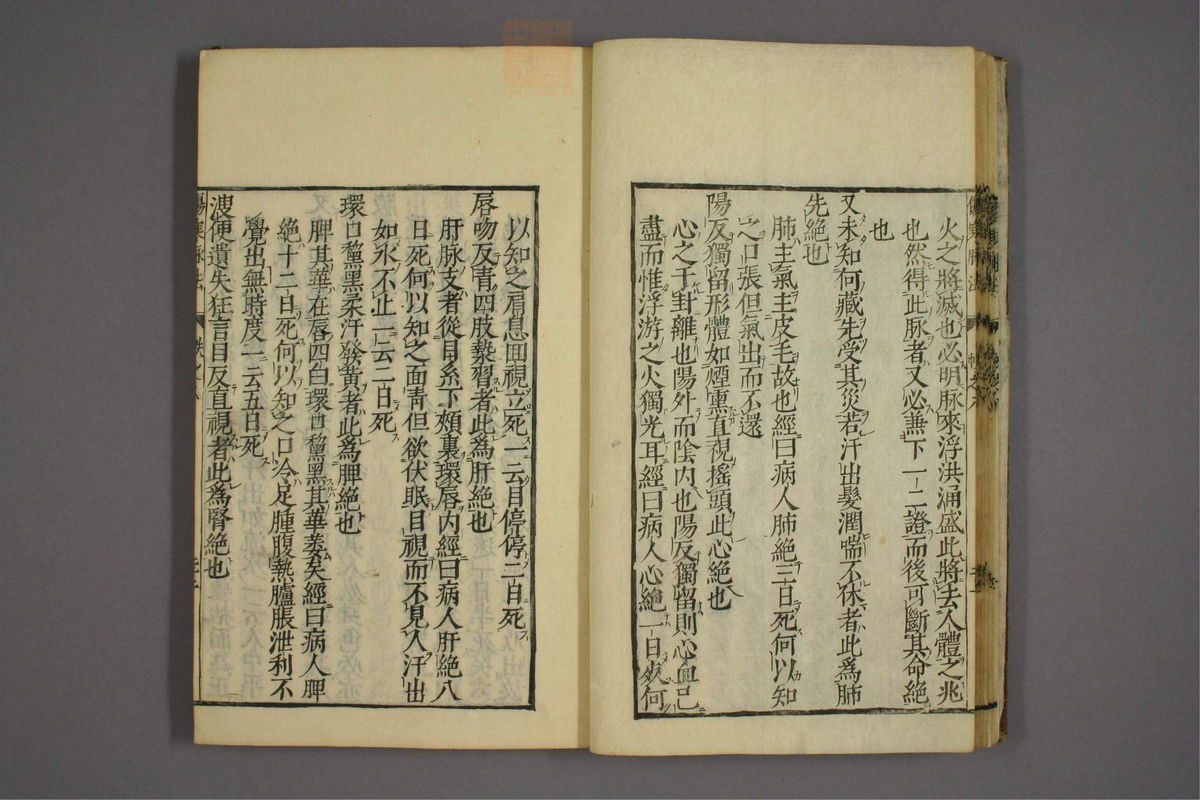 火之將滅也必明脉來浮洪涌盛此將去人體之兆
也然得此脉者又必兼下一二證而後可斷其命絕
也
又未知何藏先受其災若汗出髮潤喘不休者此爲肺
先絕也
肺主氣主皮毛故也經曰病人肺絕三日死何以知
之口張但氣出而不還
陽反獨留形體如煙熏直視搖頭此心絕也
心之于卦離也陽外而陰内也陽反獨留則心血已
盡而惟浮游之火獨光耳經曰病人心絕一日死何
以知之肩息囬視立死一云目停停二日死
唇吻反青四肢漐習者此爲肝絕也
肝脉支者從目系下頰裏環唇内經曰病人肝絕八
日死何以知之面靑但欲伏眠目視而不見人汗出
如水不止一云二日死
環口黧黑柔汗發黃者此爲脾絕也
脾其華在唇四白環口黧黑其華萎矣經曰病人脾
絕十二日死何以知之口冷足腫腹熱臚脹泄利不
覺出無時度一云五日死
溲便遺失狂言目反直視者此爲腎絕也
傷寒脉法